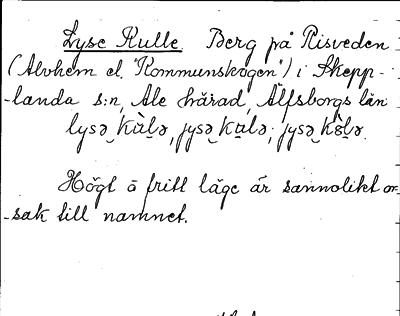 Lyse Kulle. Berg på Risveden
(Alvhem el. "Kommunskogen") i Skepp-
-landa s:n, Ale härad, Älfsborgs län
lysə kùlə, jysə kulə, jysə kolə.
Högt o fritt läge är sannolikt or-
-sak till namnet.